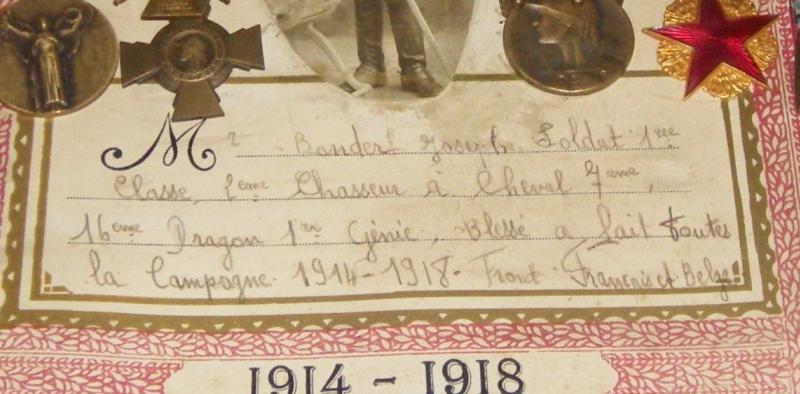 Mr Bonderf Joseph Soldat 1ere
Classe, 2eme Chasseur à Cheval 7eme,
16eme Dragon 1er Génie, Blessé a fait toutes
la Campagne 1914-1918- Front Francais et Belge
1914 - 1918